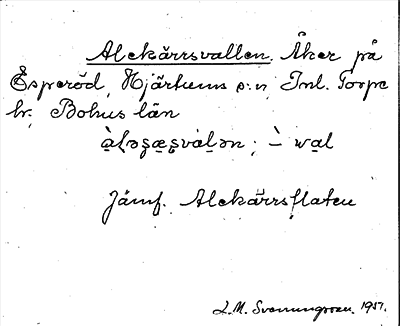 Alekärrsvallen. Åker på
Esperöd, Hjärtums s:n, Inl. Torpe
hr. Bohus län
àləʂæʂvàlən; –̀ wal
Jämf. Alekärrsflaten
1917.